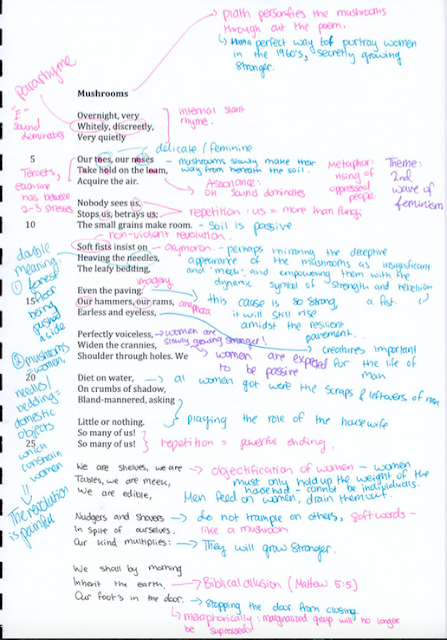 → plath personifies the mushrooms
through out the poem.
↳ a perfect way to portray women
in the 1960's, secretly growing
stronger.
Pararhyme
Mushrooms
"E"
sound
dominates
Overnight, very
Whitely, discreetly,
Very quietly
internal slant
rhyme.
delicate / feminine
Tercets,
each line
has between
2-3 stresses
5 Our toes, our noses
Take hold on the loam,
Acquire the air.
- mushrooms slowly make their
way from beneath the soil.
Assonance:
OH sound dominates
Metaphor:
rising of
oppressed
people
Theme:
2nd
wave of
feminism
Nobody sees us,
Stops us, betrays us;
10 The small grains make room.
repetition: us = more than fungi
- Soil is passive
non-violent revolution.
double
meaning
① forest
floor
being
pushed
aside
Soft fists insist on
Heaving the needles,
The leafy bedding,
oxymoron - perhaps mirroring the deceptive
appearance of the mushrooms as insignificant
and 'meek', and empowering them with the
dynamic symbol of strength and rebellion
a fist.
imagery
Even the paving.
15 Our hammers, our rams,
Earless and eyeless,
anaphora
this cause is so strong,
it will still rise
amidst the resilient
pavement.
Perfectly voiceless,
Widen the crannies,
Shoulder through holes. We
→ women are
slowly growing stronger!
creatures important
for the life of
man
women are expected
to be passive
② mushrooms
= women,
needles/
bedding =
domestic
objects
which
constrain
women
20 Diet on water,
On crumbs of shadow,
Bland-mannered, asking
→ all women got were the scraps & leftovers of men
Little or nothing.
So many of us!
25 So many of us!
playing the role of the housewife
repetition = powerful ending.
The revolution
is painful
We are shelves, we are
Tables, we are meek,
We are edible,
→ objectification of women - women
must only hold up the weight of the
household - cannot be individuals.
Men feed on women, drain them out.
Nudgers and shovers
In spite of ourselves.
Our kind multiplies:
→ do not trample on others, soft words -
like a mushroom
→ They will grow stronger.
We shall by morning
Inherit the earth.
Our foot's in the door.
Biblical allusion (Mattew 5:5)
→ stopping the door from closing
↳ metaphorically: marginalized group will no longer
be supressed